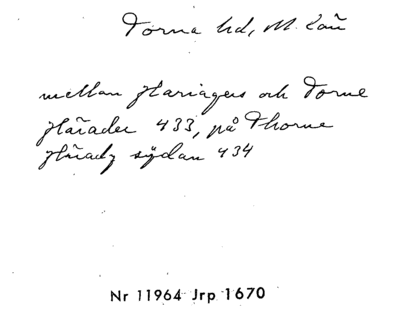 Torna hd, M. Län
mellan Hariagers och Torne
Härader 433, på Thorne
Häradz sÿdan 434
Nr 11964 Jrp 1670